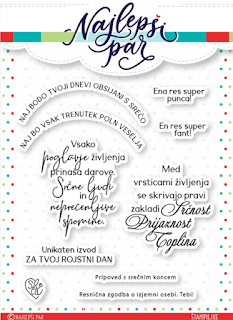 Najlepši
par
NAJ BODO TVOJI DNEVI OBSIJANI S SREČO
NAJ BO VSAK TRENUTEK POLN VESELJA
Ena res super
punca!
En res super
fant!
Vsako
poglavje življenja
prinaša darove.
Srčne ljudi
in
neprecenljive
spomine.
Med
vrsticami življenja
se skrivajo pravi
zakladi Srčnost
Prijaznost
Toplina
Unikaten izvod
ZA TVOJ ROJSTNI DAN
Pripoved s srečnim koncem
Resnična zgodba o izjemni osebi. Tebi!
©NAJLEPŠI PAR
ŠTAMPILJKE